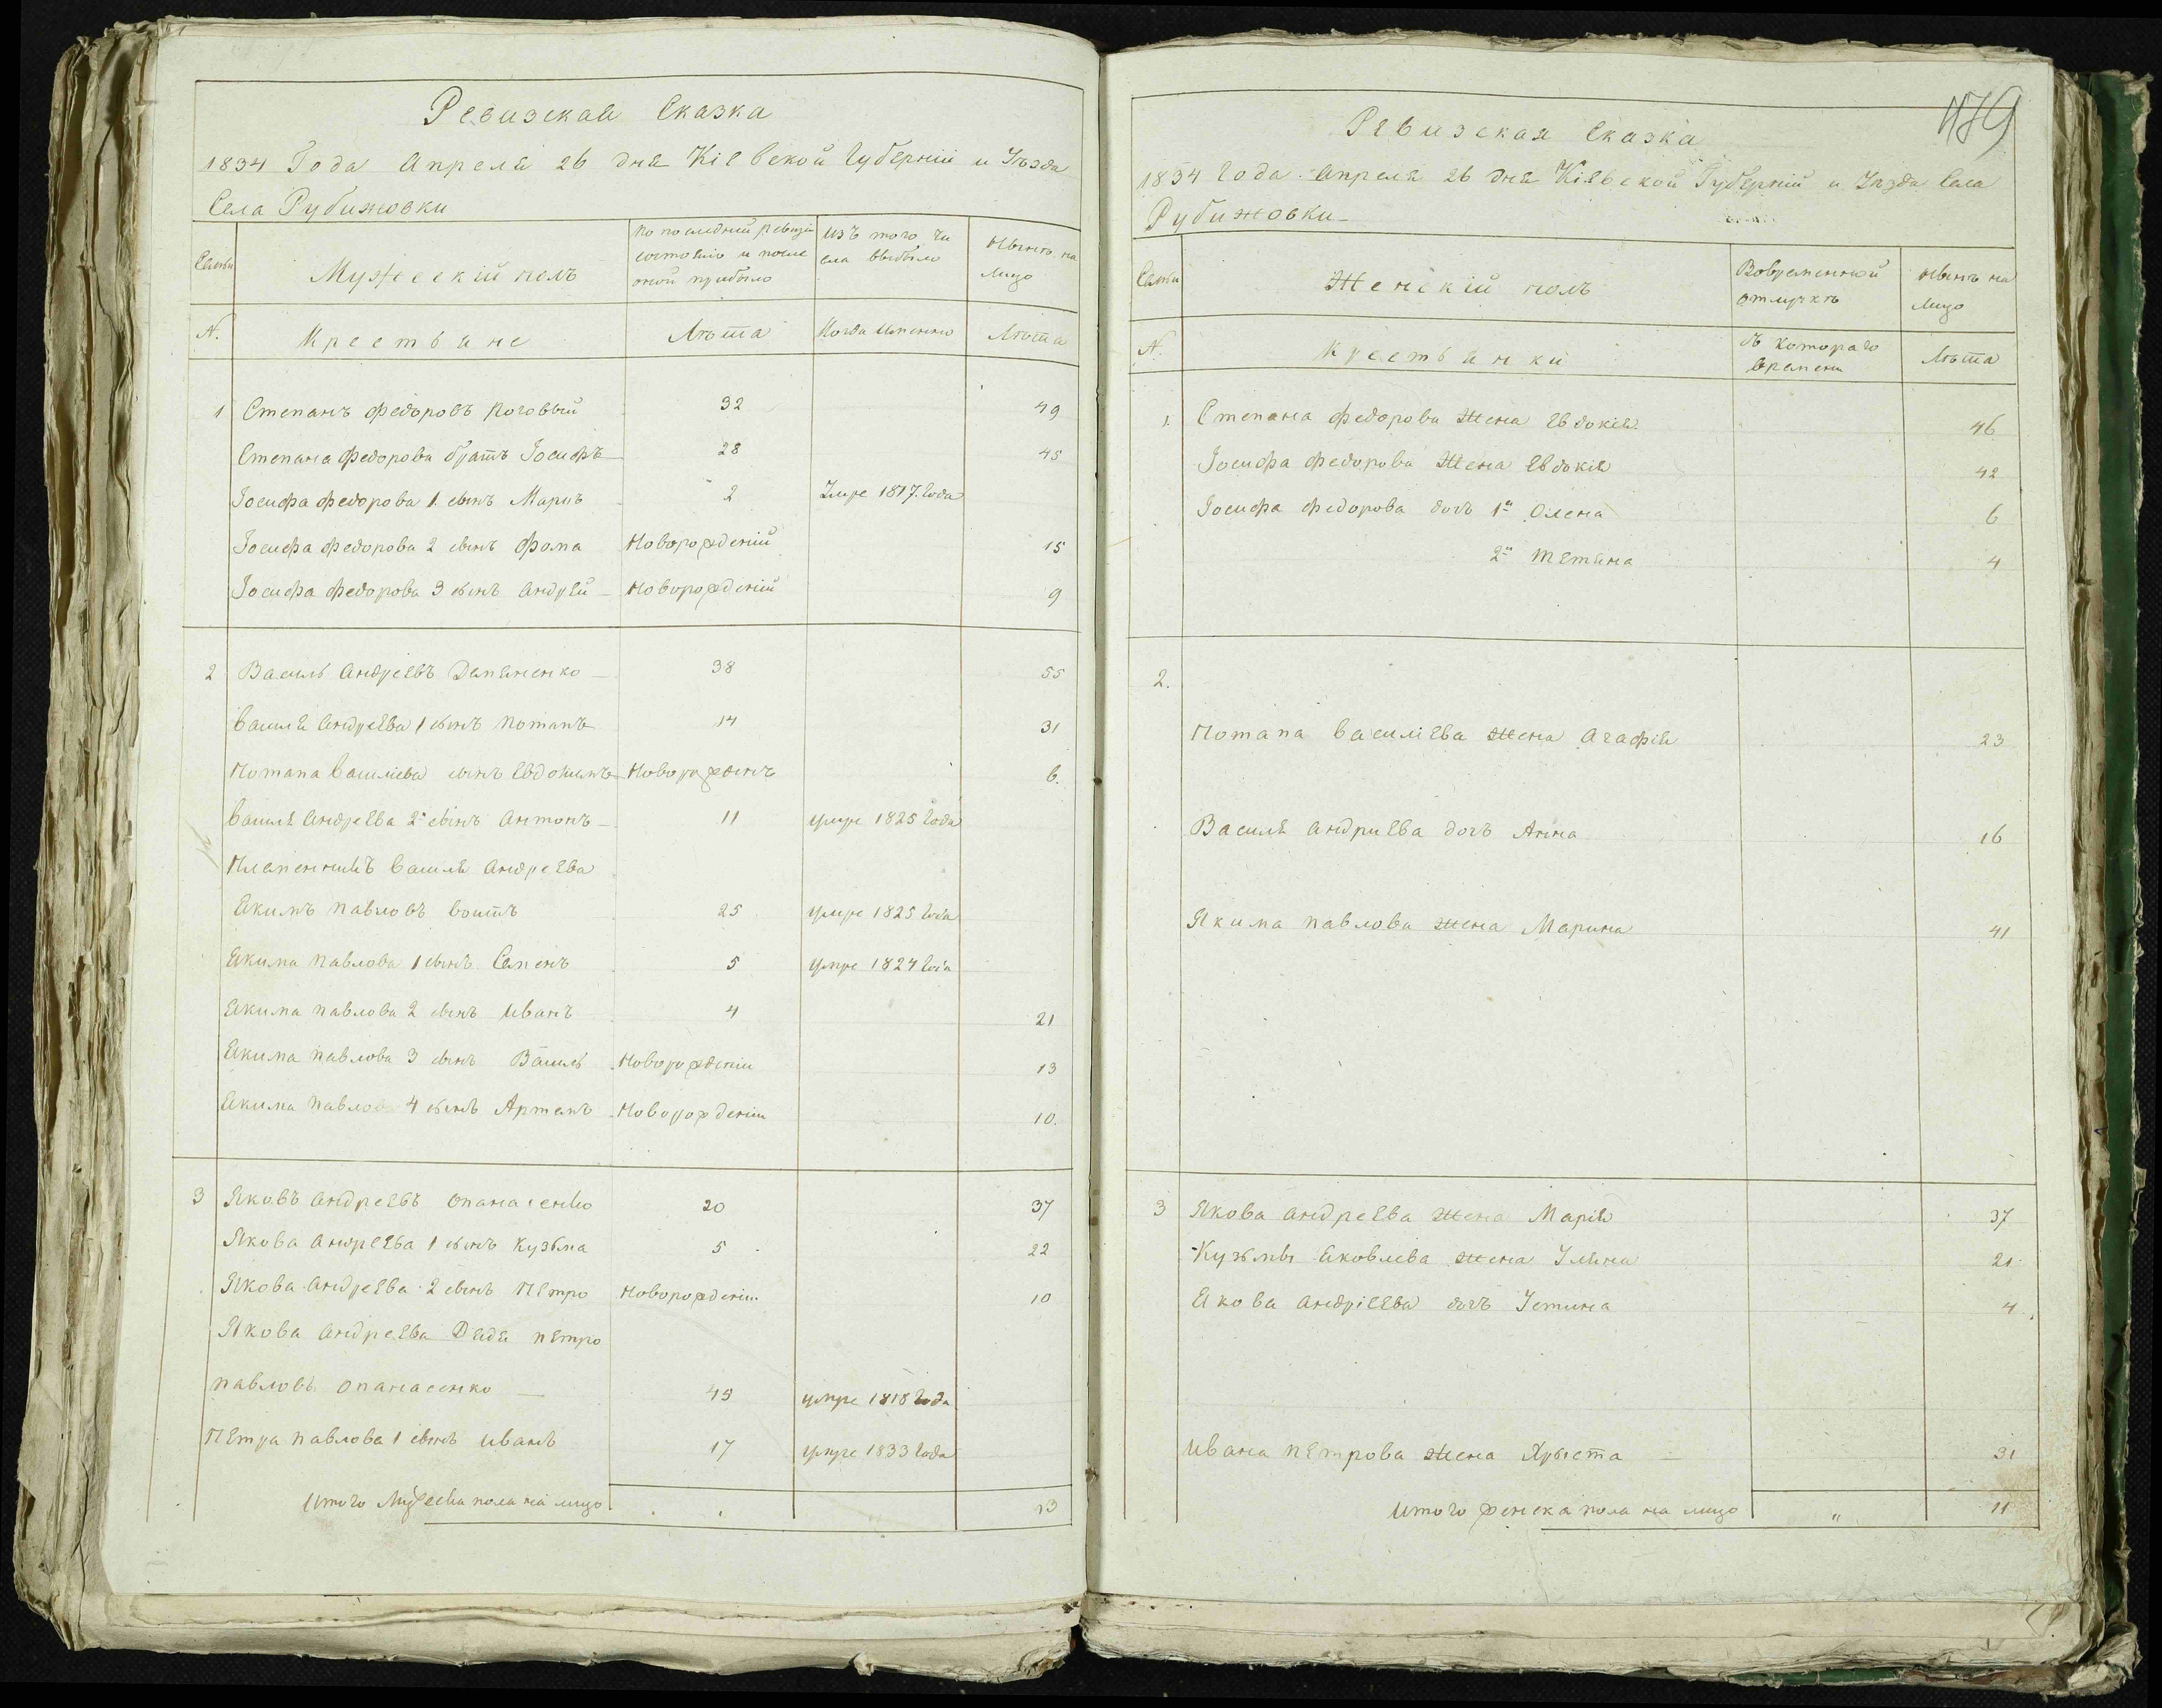 Ревизская Сказка
1834 Года Апреля 26 дня Кіевской Губерніи и Уѣзда
Села Рубижовки
Семьи
Мужеский полъ
По последней ревизіи состояло и после оной прибыло
Изъ того числа выбыло
Нынѣ на лицо
N.
Крестьяне
Лѣта
Когда именно
Лѣта
1 Степанъ Федоровъ Роговый 32 49
Степана Федорова братъ Іосифъ 28 45
Іосифа Федорова 1. сынъ Марко 2 Умре 1817. Года
Іосифа Федорова 2 сынъ Фома Новорожденій 15
Іосифа Федорова 3 сынъ Андрей Новорожденій 9
2 Василь Андреевъ Демяненко 38 55
Василя Андреева 1 сынъ Потапъ 14 31
Потапа Василіева сынъ Евдокимъ Новорожденъ 6.
Василя Андреева 2й сынъ Антонъ 11 умре 1825 Года
Племенникъ Василя Андреева
Якимъ Павловъ 25 умре 1825 Года
Якима Павлова 1 сынъ Семенъ 5 умре 1824 Года
Якима Павлова 2 сынъ Иванъ 4 21
Якима Павлова 3 сынъ Василь Новорожденій 13
Якима Павлова 4 сынъ Артемъ Новорожденій 10.
3 Яковъ Андреевъ Опанасенко 20 37
Якова Андреева 1 сынъ Кузьма 5 22
Якова Андреева 2 сынъ Петро Новорожденій 10
Якова Андреева Дядя Петро
Павловъ Опанасенко 45 умре 1818 Года
Петра Павлова 1 сынъ Иванъ 17 умре 1833 Года
Итого Мужеска пола на лицо 13
479
Ревизская Сказка
1834 Года Апреля 26 дня Кіевской Губерній и Уѣзда Села
Рубижовки
Семьи
Женскій полъ
Вовременной отлучкѣ
Нынѣ на лицо
N.
Крестьянки
Съ котораго времени
Лѣта
1. Степана Федорова Жена Евдокія 46
Іосифа Федорова Жена Евдокія 42
Іосифа Федорова дочь 1я Олена 6
2я Тетяна 4
2.
Потапа Василіева Жена Агафія 23
Василя Андриева дочь Анна 16
Якима Павлова Жена Марина 41
3 Якова Андреева Жена Марія 37
Кузьмы Яковлева Жена Уляна 21
Якова Андріева дочь Устина 4
Ивана Петрова Жена Хрыста 31
Итого женска пола на лицо " 11